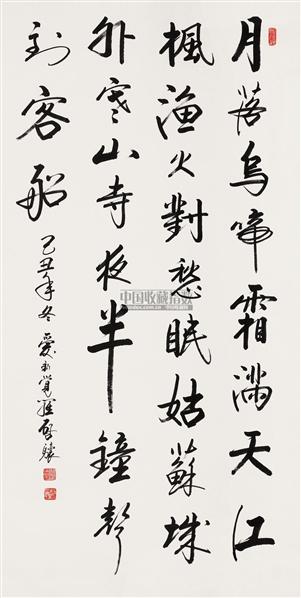 月落烏啼霜滿天江
楓漁火對愁眠姑蘇城
外寒山寺夜半鐘聲
到客船
己丑年冬 愛新覺羅啟驤
中国收藏指数